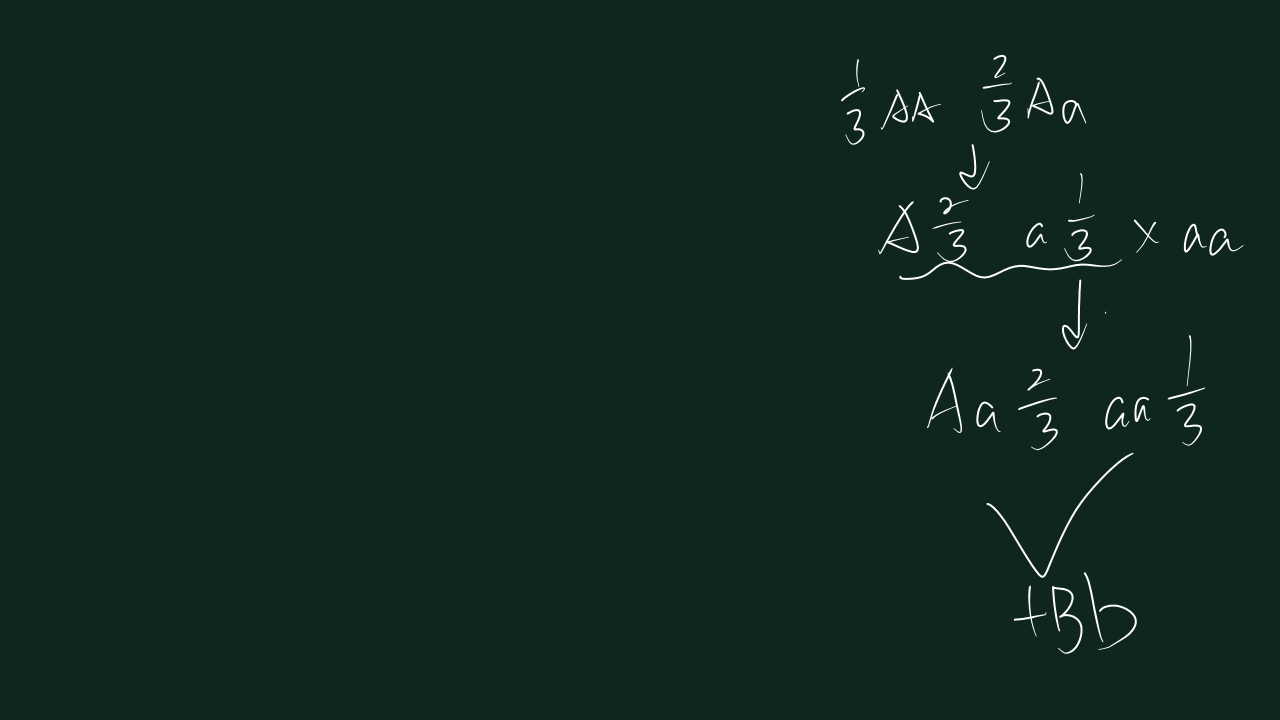 1/3 AA 2/3 Aa
↓
A 2/3 a 1/3 × aa
↓
Aa 2/3 aa 1/3
+Bb